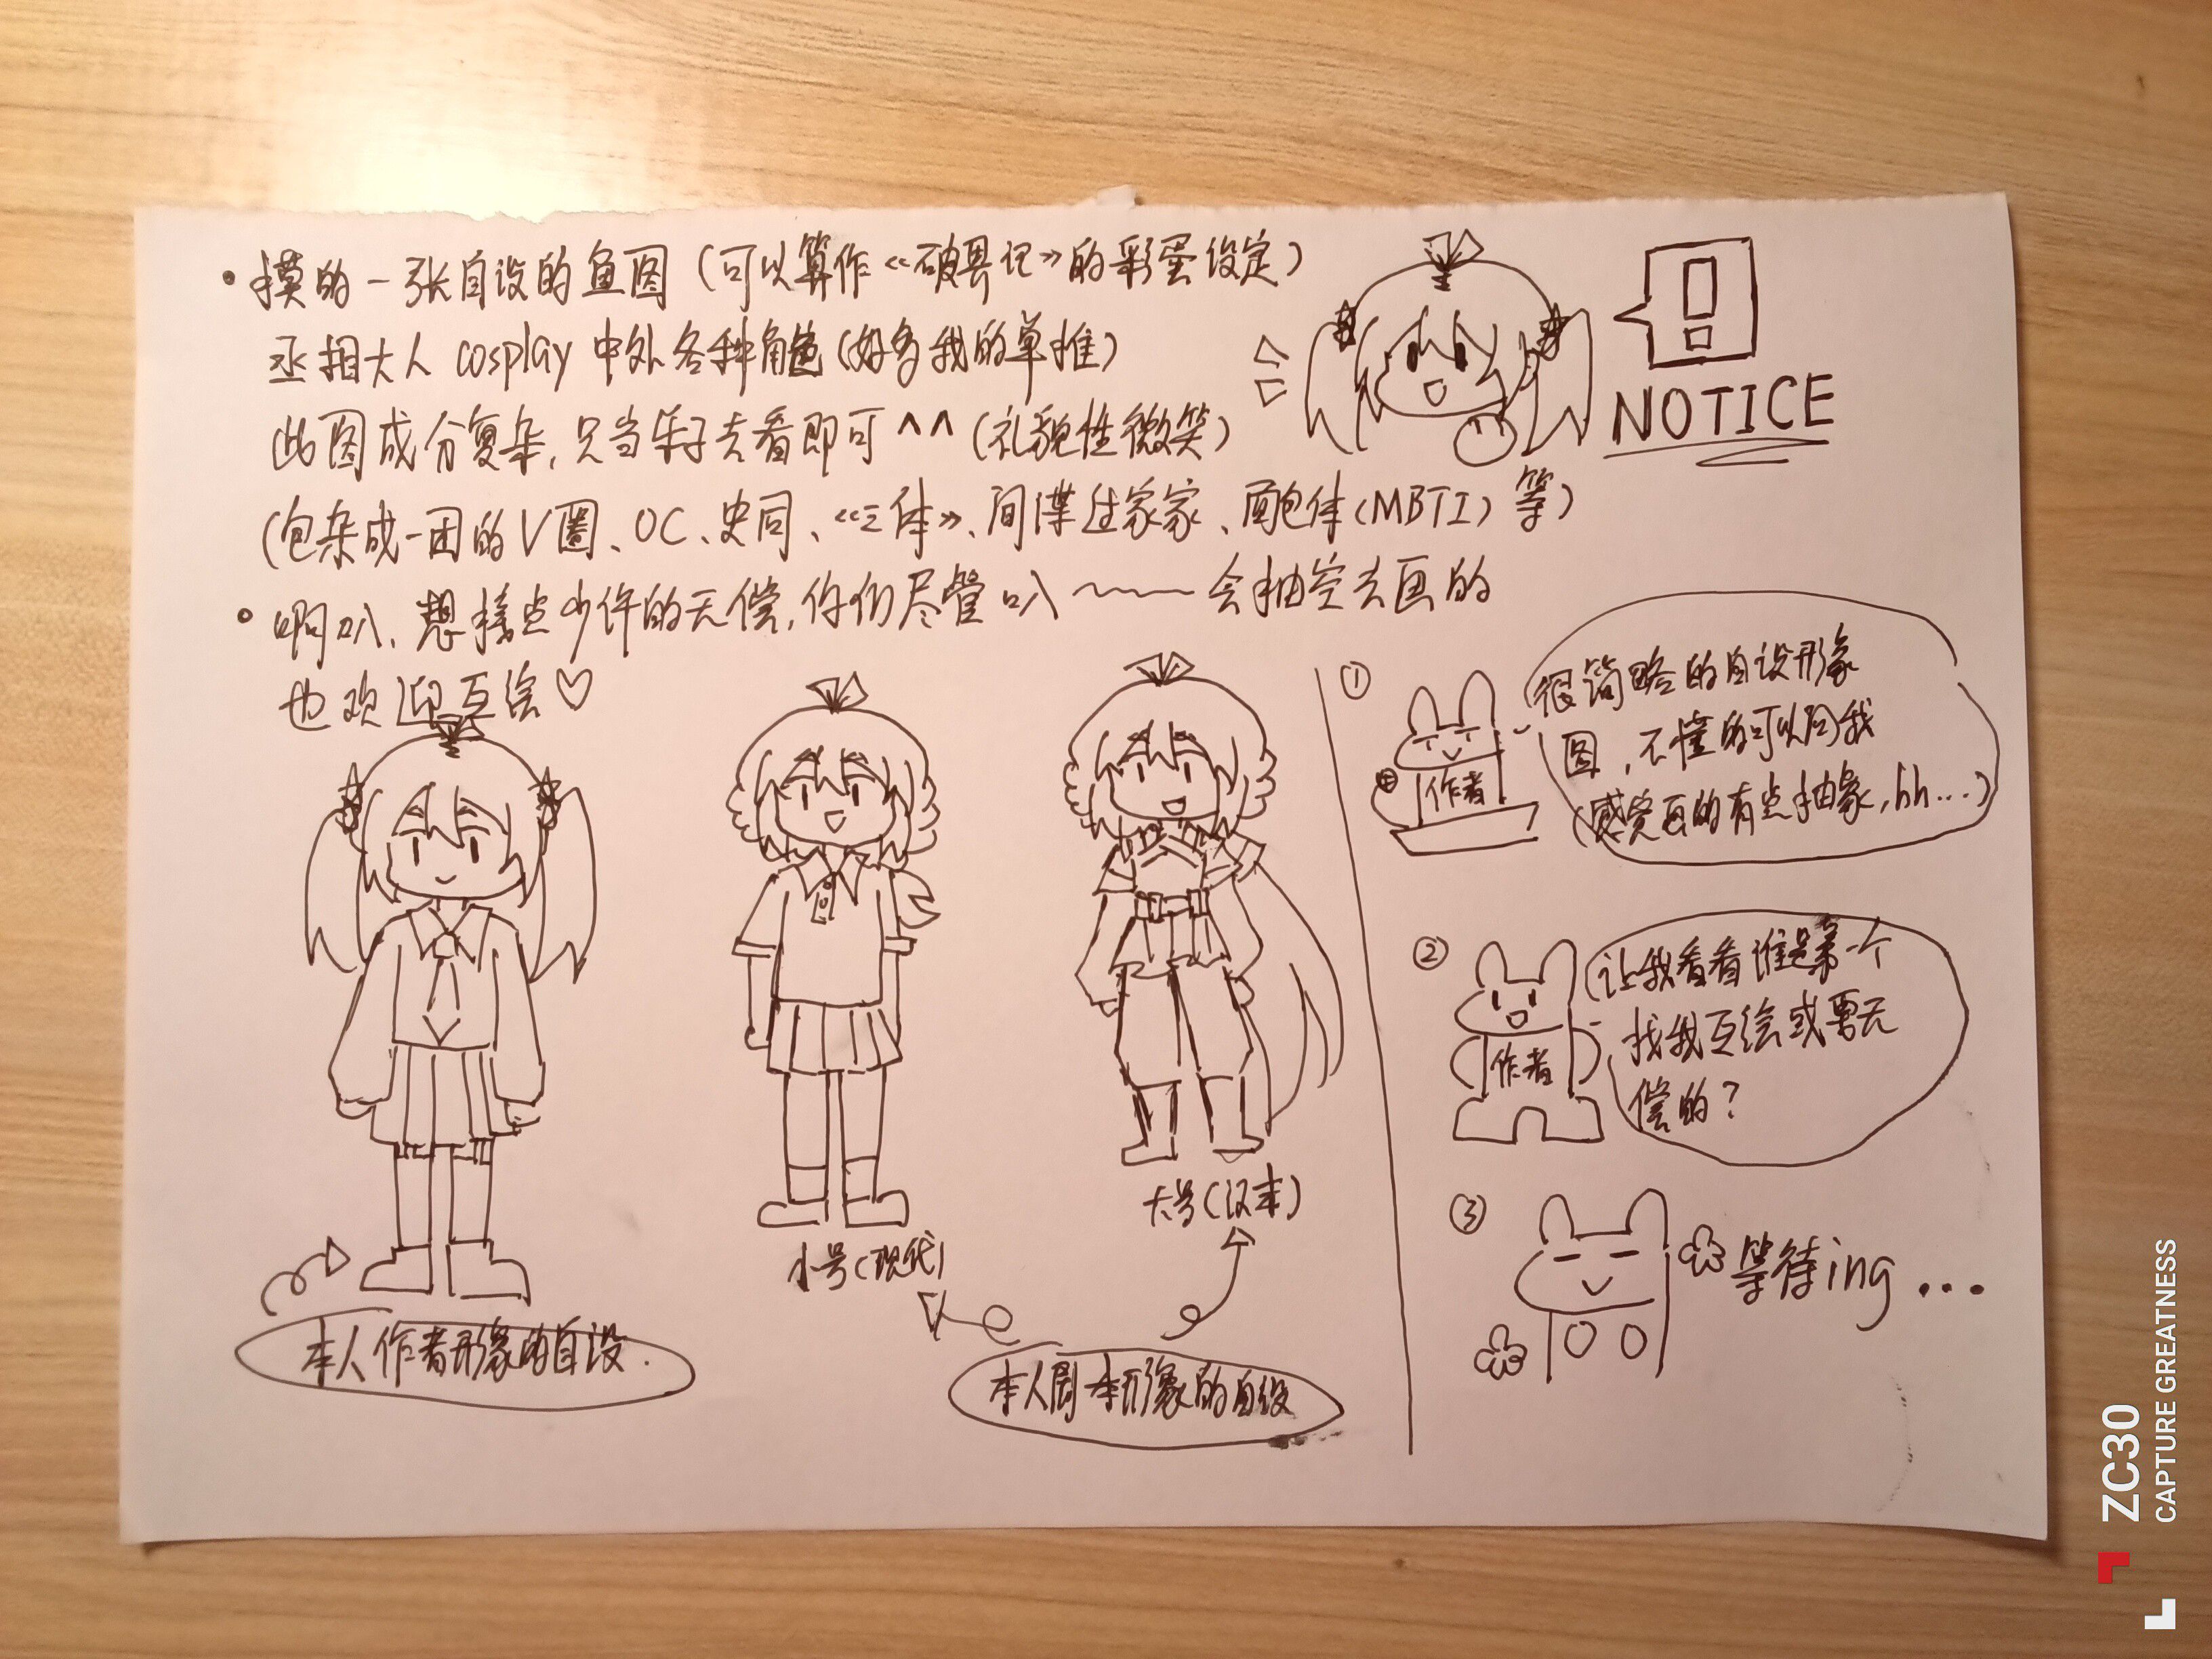 •摸的一张自设的鱼图(可以算作《破界记》的彩蛋设定)
丞相大人 cosplay 中外各种角色(好多我的单推)
此图成分复杂,只当乐子去看即可^^(礼貌性微笑)
(包杂成一团的V圈、OC、史同、《三体》、间谍过家家、面包体(MBTI)等)
•啊叭、想接点少许的无偿,你们尽管叭~~~会抽空去画的
也欢迎互绘♡
!
NOTICE
本人作者形象的自设.
小号(现代)
大号(汉末)
本人剧本形象的自设
①
作者
很简略的自设形象
图,不懂的可以问我
(感觉画的有点抽象,hh...)
②
作者
让我看看谁是第一个
找我互绘或要无
偿的?
③
等待ing...
ZC30
CAPTURE GREATNESS